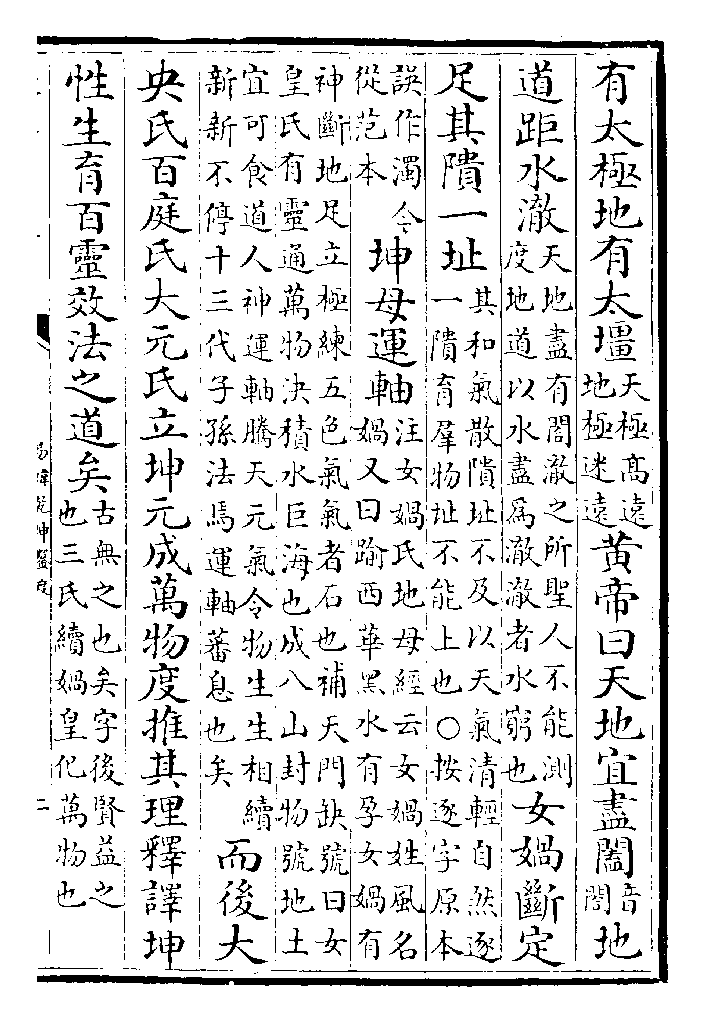 有太極地有太壃天極高遠地極迷遠黄帝曰天地宜盡闔音閤地
道距水澈天地盡有閤澈之所聖人不能測度地道以水盡爲澈澈者水窮也女媧斷定
足其隤一址其和氣散隤址不及以天氣清輕自然逐一隤育羣物址不能上也○按逐字原本
誤作濁今從范本坤母運軸注女媧氏地母經云女媧姓風名媧又曰踰西華黑水有孕女媧有
神斷地足立極練五色氣氣者石也補天門缺號曰女皇氏有靈通萬物決積水巨海也成八山封物號地土
宜可食道人神運軸騰天元氣令物生生相續新新不停十三代子孫法馬運軸蕃息也矣而後大
央氏百庭氏大元氏立坤元成萬物度推其理釋譯坤
性生育百靈效法之道矣古無之也矣字後賢益之也三氏續媧皇化萬物也
易緯乾坤鑿度
二